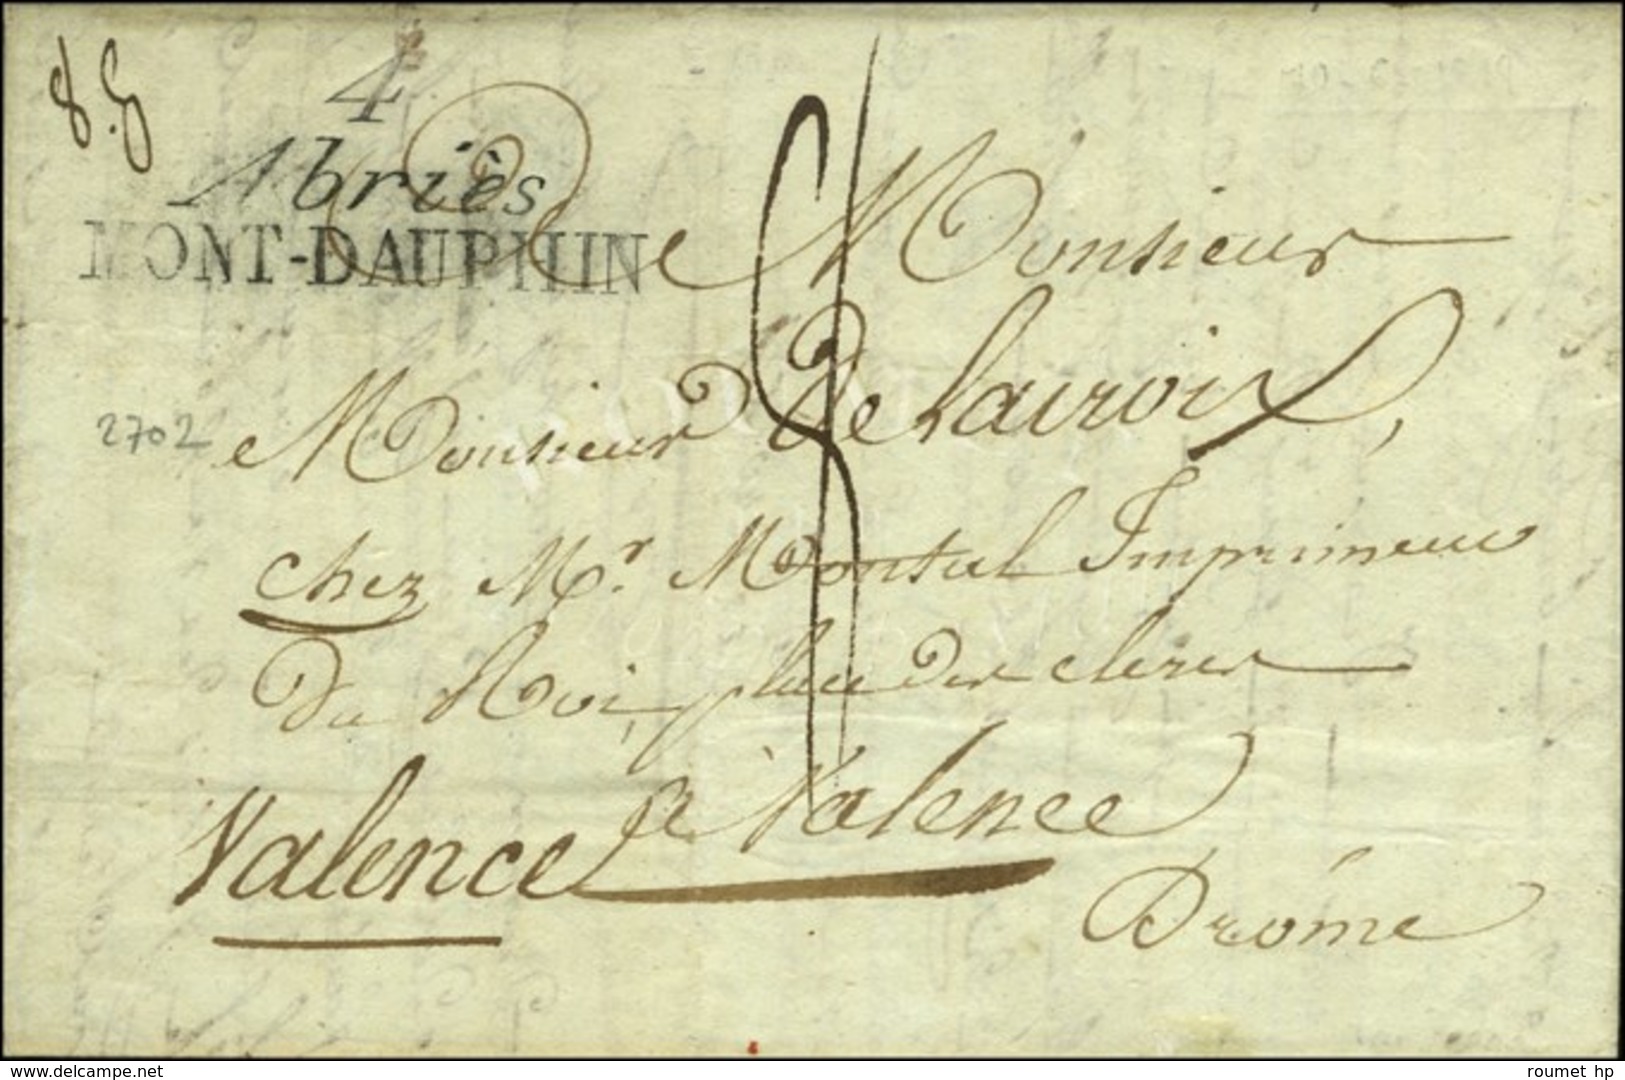 4
Abriès
MONT-DAUPHIN
De Monsieur
2702
Monsieur Delacroix,
chez Mr. Montal Imprimeur
Du Roi, place des clercs
Valence a Valence
Drôme
delcampe.net
roumet hp